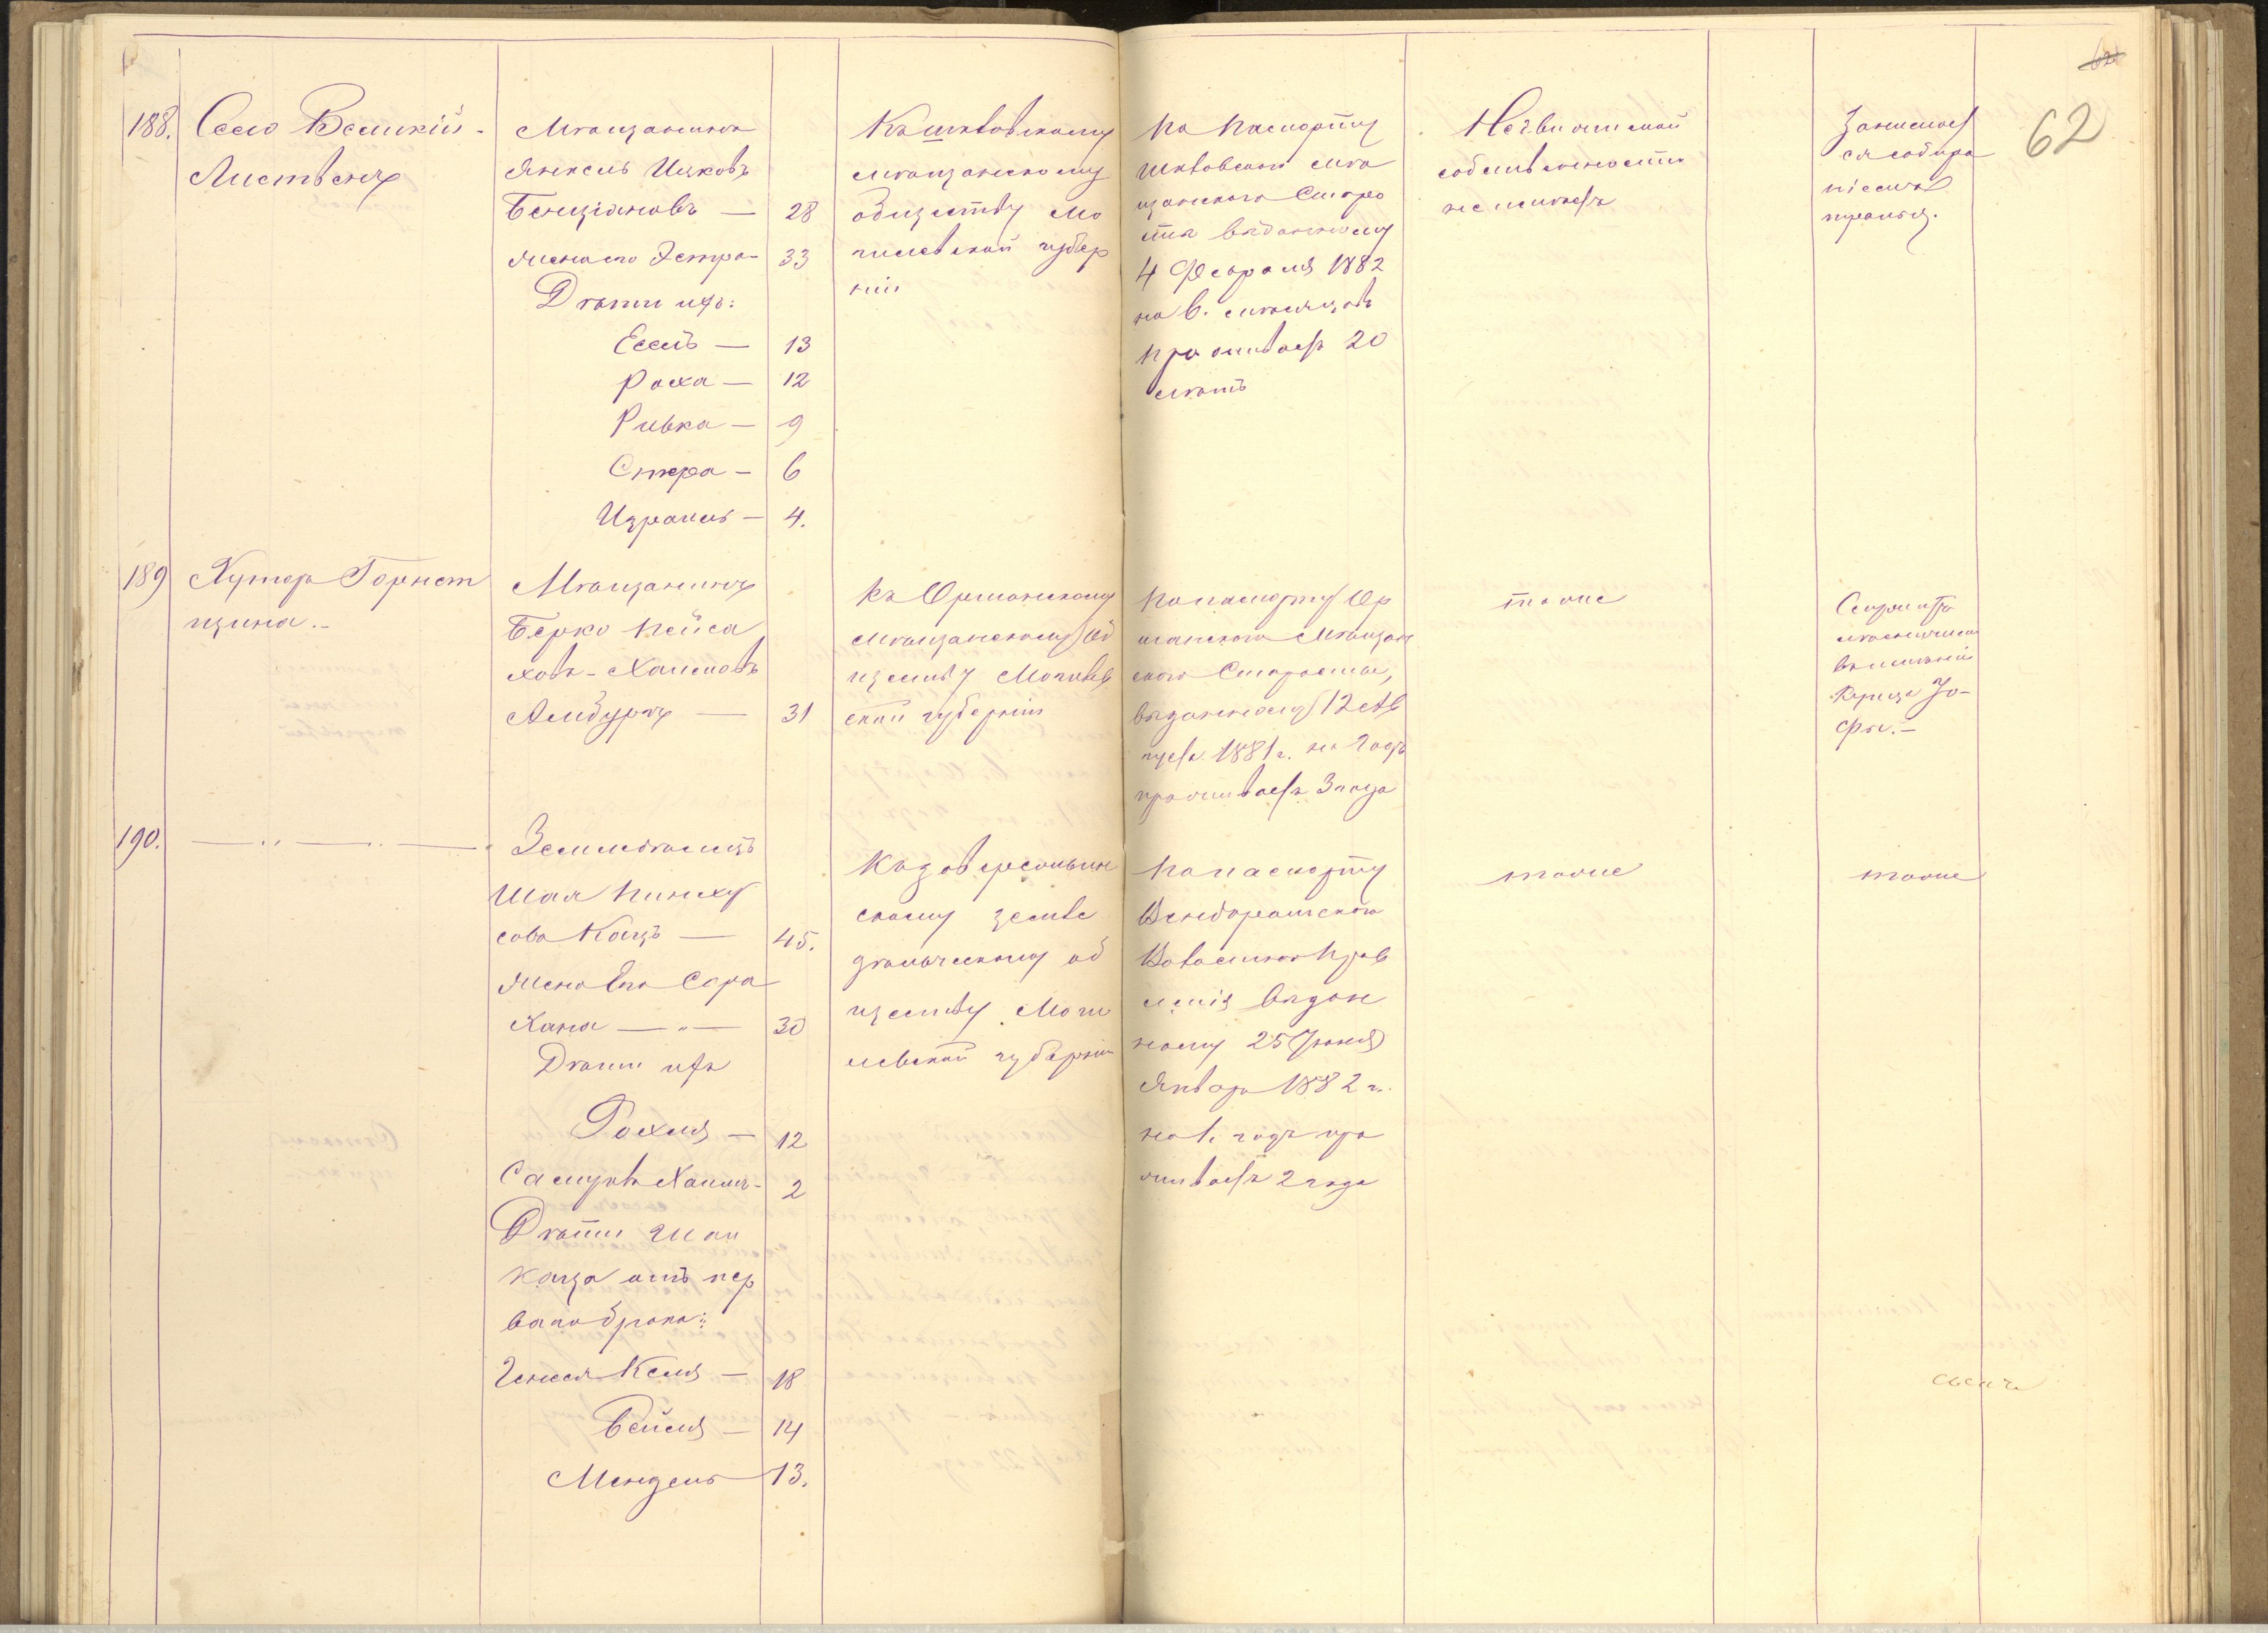 62
62
188.
Село Великій-
Листвень
Мѣщанинъ
Янкель Ицковъ
Бенціановъ — 28
жена его Эстра- 33
Дѣти ихъ:
Есель — 13
Расха — 12
Ривка — 9
Стера — 6
Израиль — 4.
Къ шкловскому
мѣщанскому
обществу Мо
гилевской губер
ніи
По паспорту
шкловскаго мѣ
щанскаго Старо
сты выданному
4 Февраля 1882
на 6. мѣсяцовъ
проживаетъ 20
лѣтъ
Недвижимой
собственности
не имѣетъ
Занимает
ся собира
ніемъ
тряпья.
189
Хуторъ Горист
щина.-
Мѣщанинъ
Берко Пейса
ховъ-Хаимовъ
Амбургъ — 31
Къ Оршанскому
мѣщанскому об
ществу Могилев
ской губерніи
По паспорту Ор
шанскаго Мѣщан
скаго Старосты,
выданному 12 Ав
густа 1881 г. на годъ
проживаетъ 3 года
тоже
въ имѣніи
Купца Іо-
фы.-
190.
— ,, — ,, —
Земледѣлецъ
Шая Пинху
совъ Кацъ — 45.
жена Его Сора
Хана — „ — 30
Дѣти ихъ
Рохля — 12
Самуилъ Хаимъ- 2
Дѣти Шаи
Каца отъ пер
ваго брака:
Генися Келя — 18
Бейля — 14
Мендель — 13.
скому земле
дѣльческому об
ществу Моги
левской губерніи
По паспорту
Волостнаго Прав
ленія выдан
ному 25
Января 1882 г.
на 1. годъ про
живаетъ 2 года
тоже
тоже